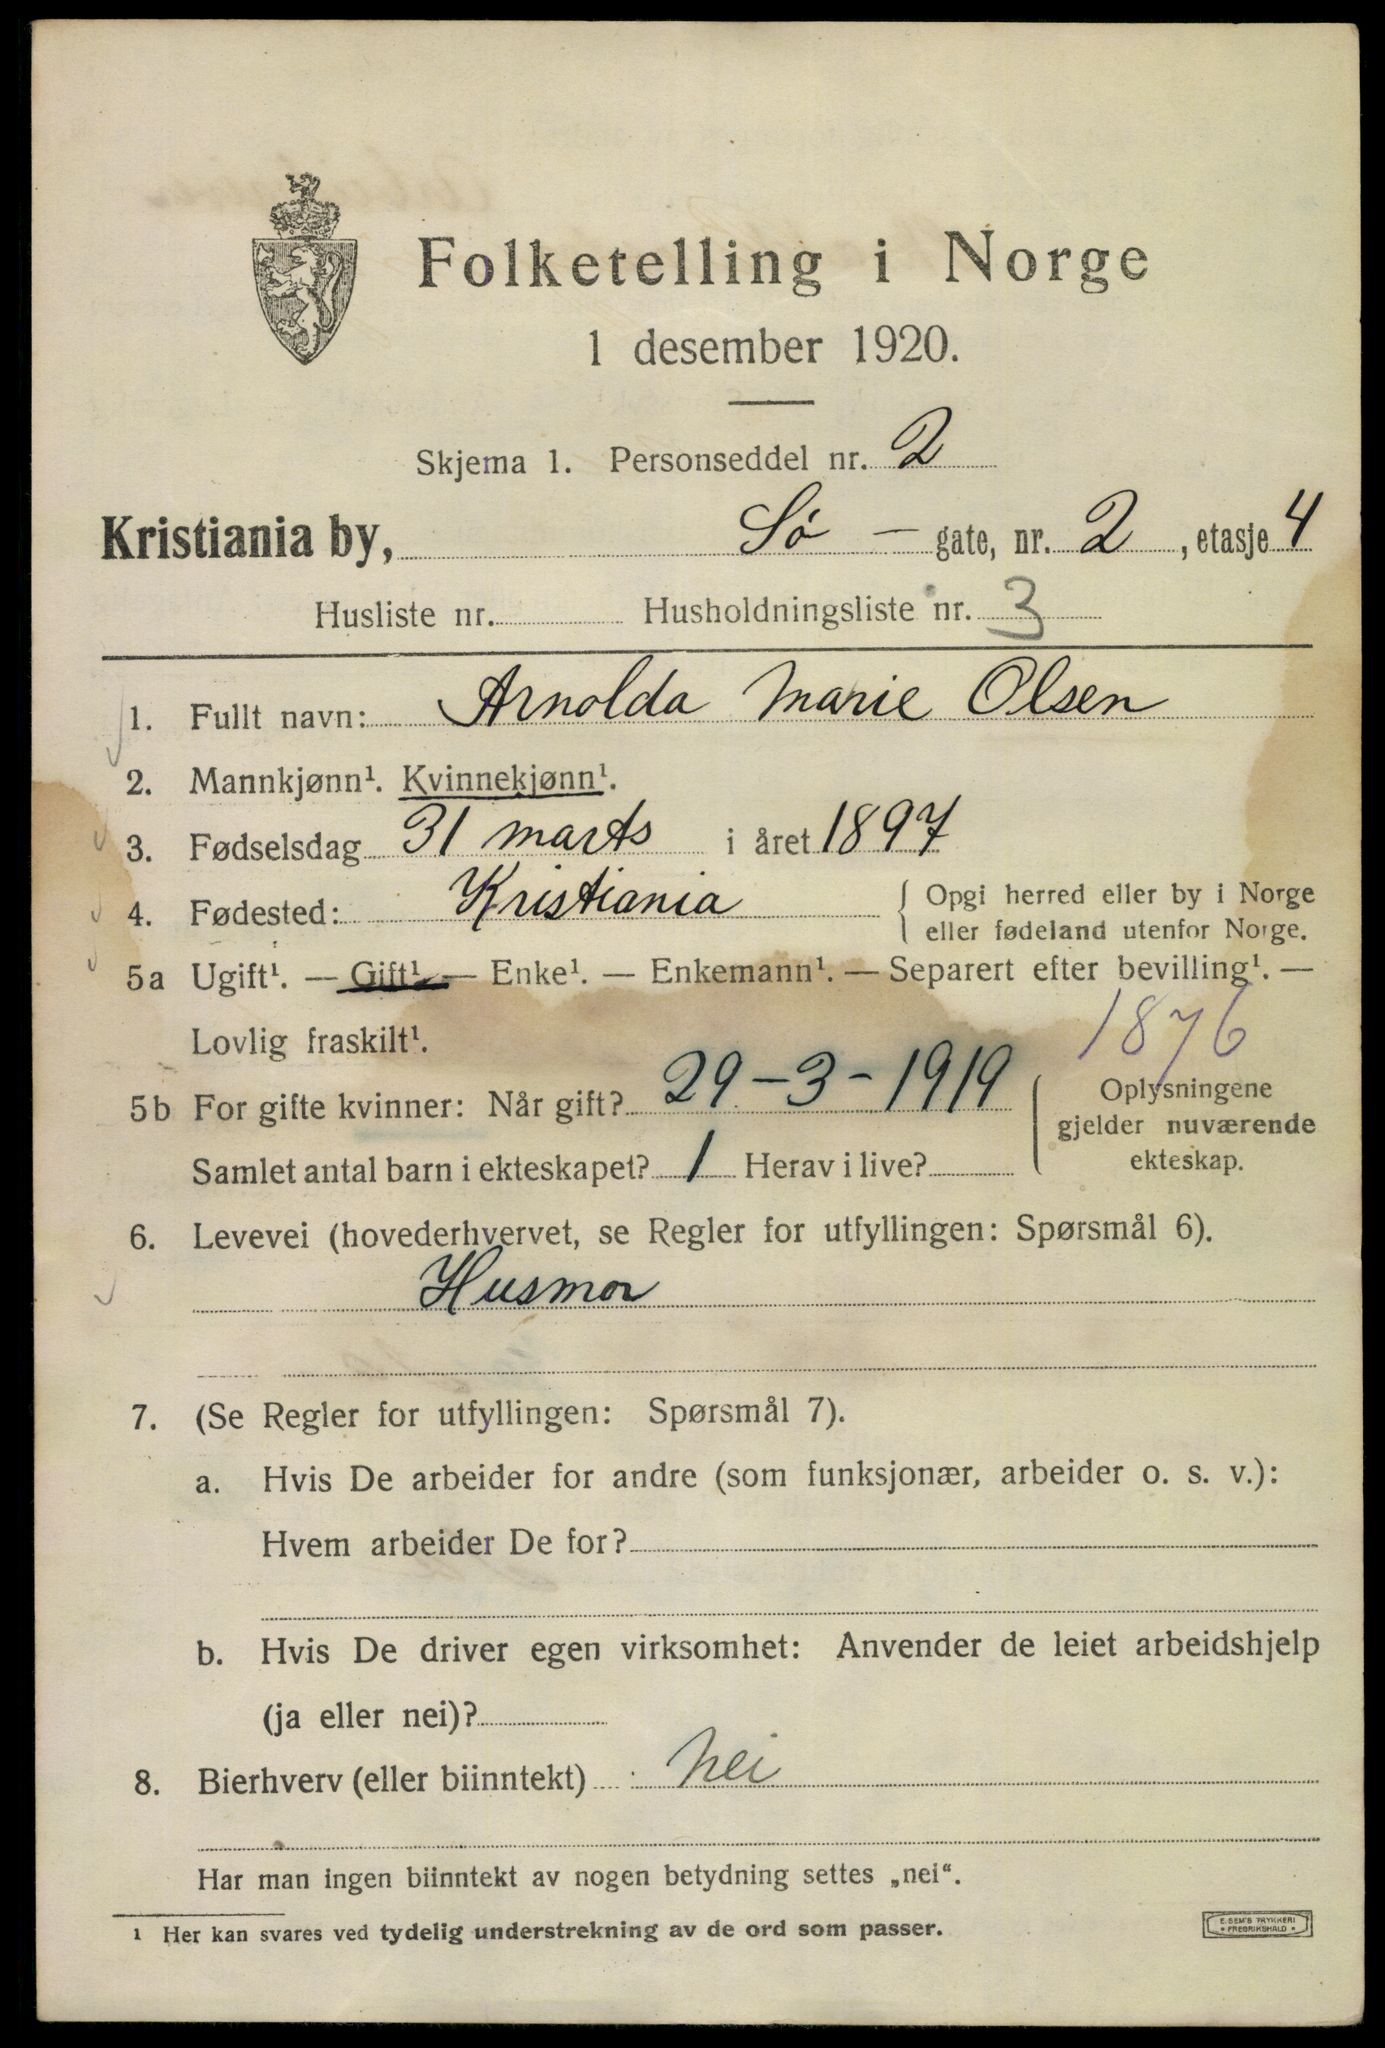 Folketelling i Norge
1 desember 1920.
Skjema 1. Personseddel nr. 2
Kristiania by, Sö — gate, nr. 2, etasje 4
Husliste nr. Husholdningsliste nr. 3
1. Fullt navn: Arnolda Marie Olsen
2. Mannkjønn¹. Kvinnekjønn¹.
3. Fødselsdag 31 marts i året 1897
4. Fødested: Kristiania { Opgi herred eller by i Norge
eller fødeland utenfor Norge.
5a Ugift¹. — Gift¹. — Enke¹. — Enkemann¹. — Separert efter bevilling¹. —
Lovlig fraskilt¹. 1876
5b For gifte kvinner: Når gift? 29-3-1919 { Oplysningene
gjelder nuværende
Samlet antal barn i ekteskapet? 1 Herav i live?
ekteskap.
6. Levevei (hovederhvervet, se Regler for utfyllingen: Spørsmål 6).
Husmor
7. (Se Regler for utfyllingen: Spørsmål 7).
a. Hvis De arbeider for andre (som funksjonær, arbeider o. s. v.):
Hvem arbeider De for?
b. Hvis De driver egen virksomhet: Anvender de leiet arbeidshjelp
(ja eller nei)?
8. Bierhverv (eller biinntekt) Nei
Har man ingen biinntekt av nogen betydning settes „nei“.
1 Her kan svares ved tydelig understrekning av de ord som passer.
E. SEM'S TRYKKERI
FREDRIKSHALD